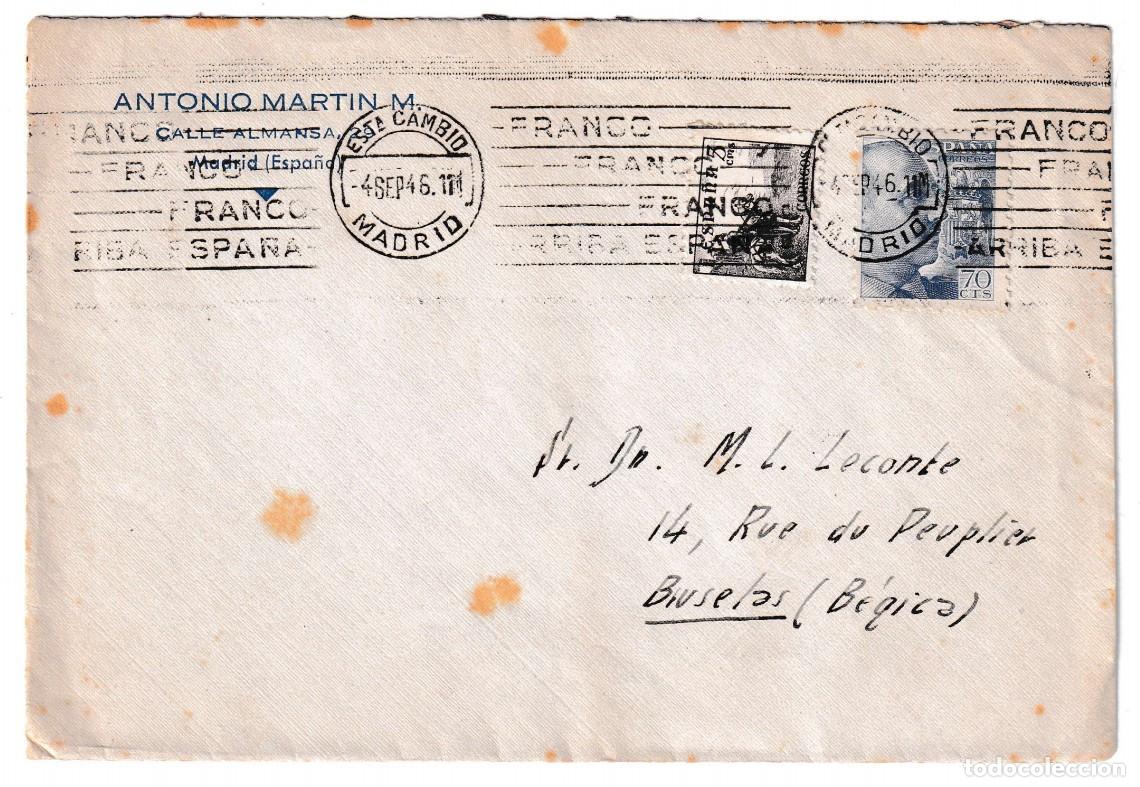 ANTONIO MARTIN M.
CALLE ALMANSA, 29
Madrid (España)
FRANCO
FRANCO
FRANCO
ARRIBA ESPAÑA
ESTA CAMBIO
-4 SEP 46. 11M
MADRID
FRANCO
FRANCO
FRANCO
ARRIBA ESPAÑA
España 5 cms
CORREOS
CAMBIO
-4 SEP 46. 11M
MADRID
ESPAÑA
CORREOS
70
CTS
FRANCO
FRAN
ARRIBA E
Sr. Dn. M. L. Leconte
14, Rue du Peuplier
Bruselas (Bégica)
todocoleccion